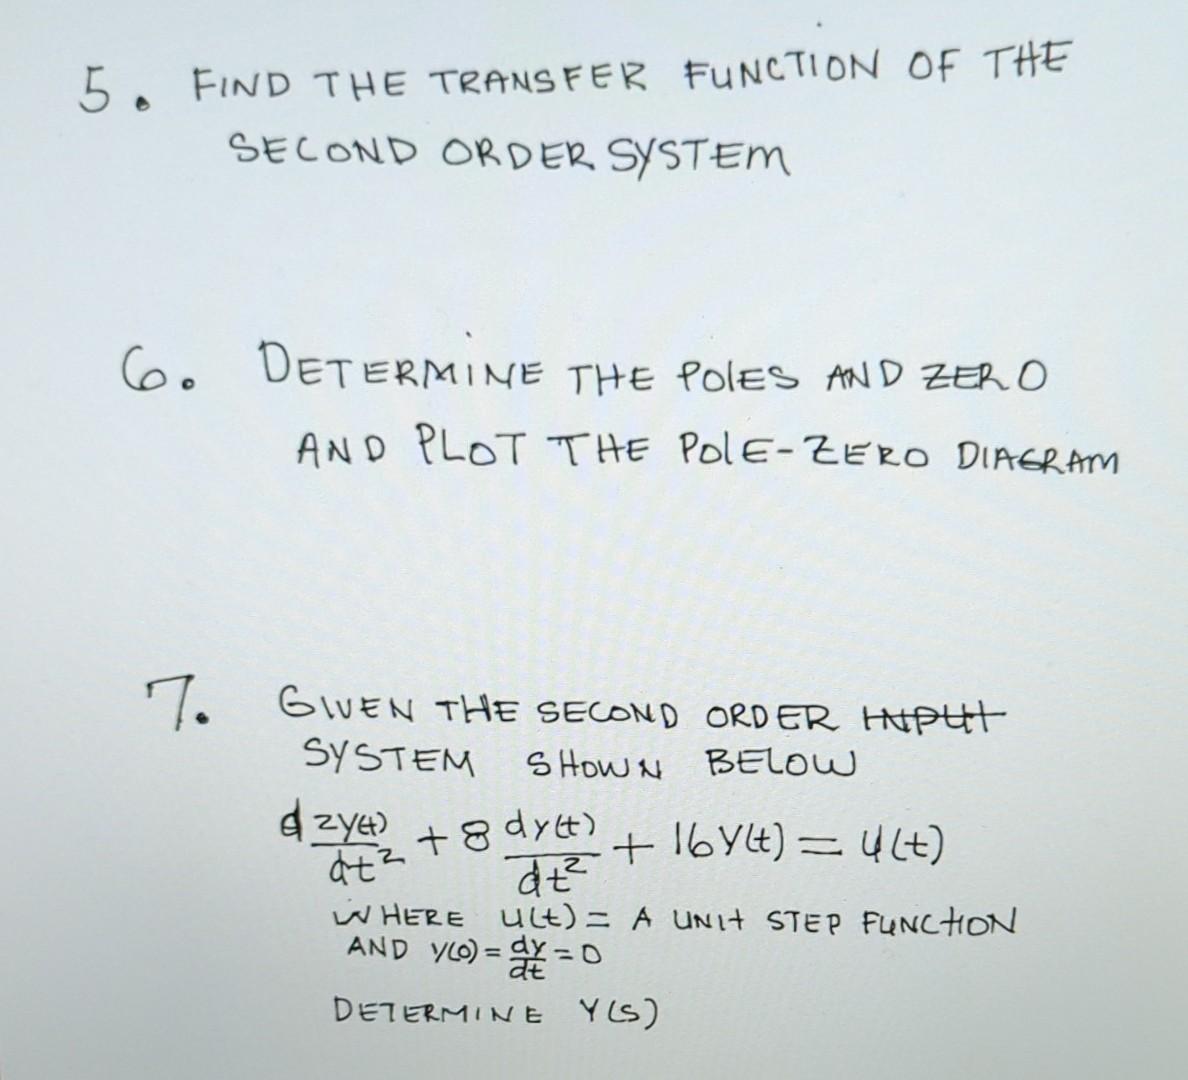 5. FIND THE TRANSFER FUNCTION OF THE
SECOND ORDER SYSTEM
6. DETERMINE THE POLES AND ZERO
AND PLOT THE POLE-ZERO DIAGRAM
7. GIVEN THE SECOND ORDER INPUT
SYSTEM SHOWN BELOW
d2y(t)/dt² + 8 dy(t)/dt² + 16y(t) = u(t)
WHERE u(t) = A UNIT STEP FUNCTION
AND y(0) = dy/dt = 0
DETERMINE Y(S)